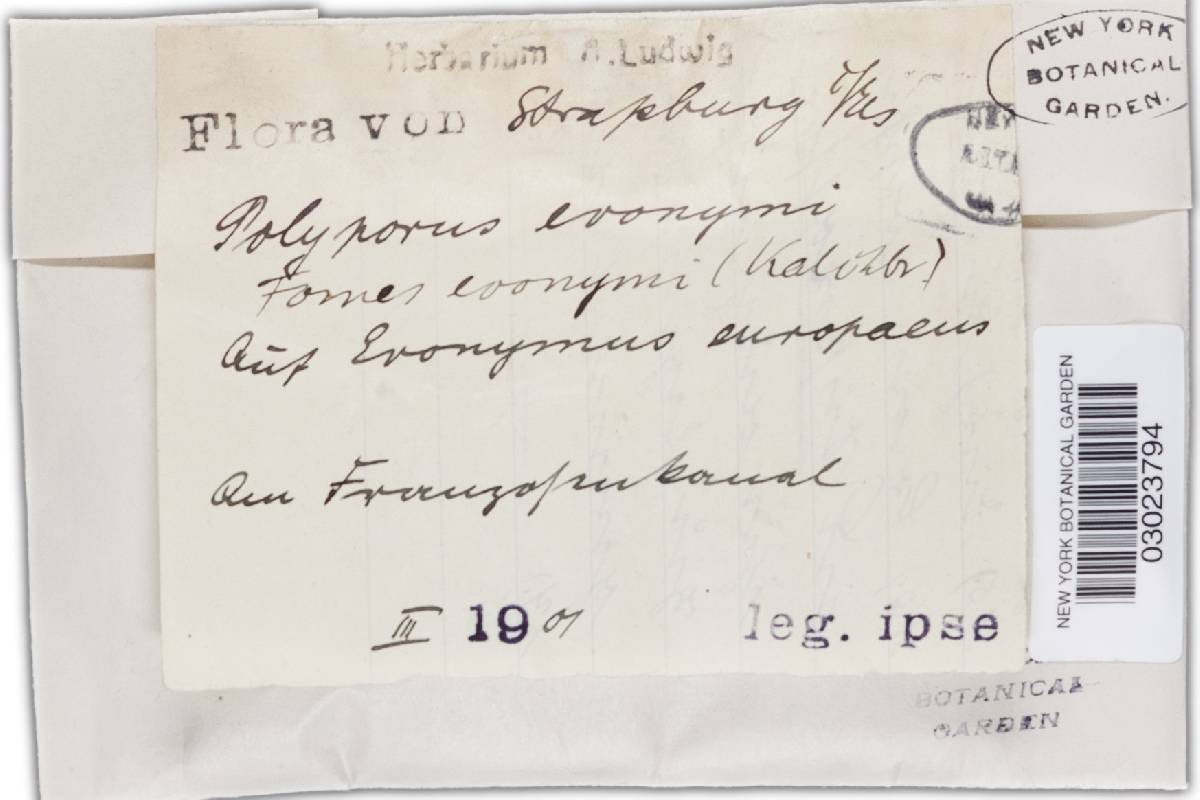 Herbarium A. Ludwig
NEW YORK
BOTANICAL
GARDEN.
Flora von Straßburg i/Els
Polyporus evonymi
Fomes evonymi (Kalchbr)
Auf Evonymus europaeus
Am Franzosenkanal
III 1901 leg. ipse
NEW YORK BOTANICAL GARDEN
03023794
BOTANICAL
GARDEN